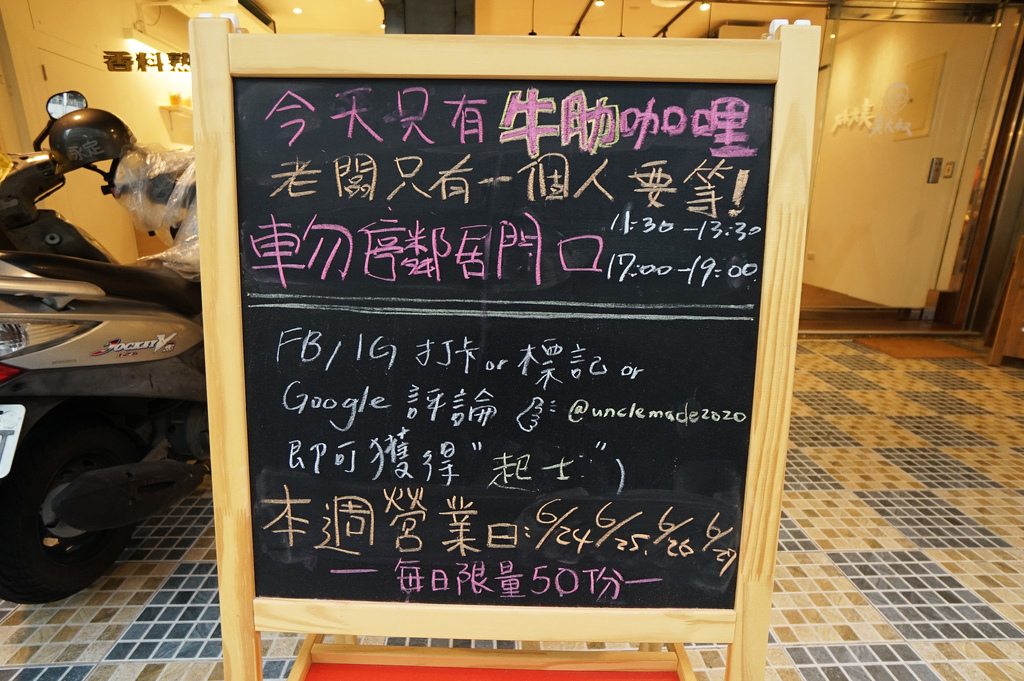 香料熟
今天只有牛肋咖哩
老闆只有一個人要等!
車勿停鄰居門口
11:30-13:30
17:00-19:00
FB/IG 打卡 or 標記 or
Google 評論 @unclemade2020
即可獲得"起士"
本週營業日:6/24 6/25. 6/26 6/27
一 每日限量50份 一
JOCKEY
125